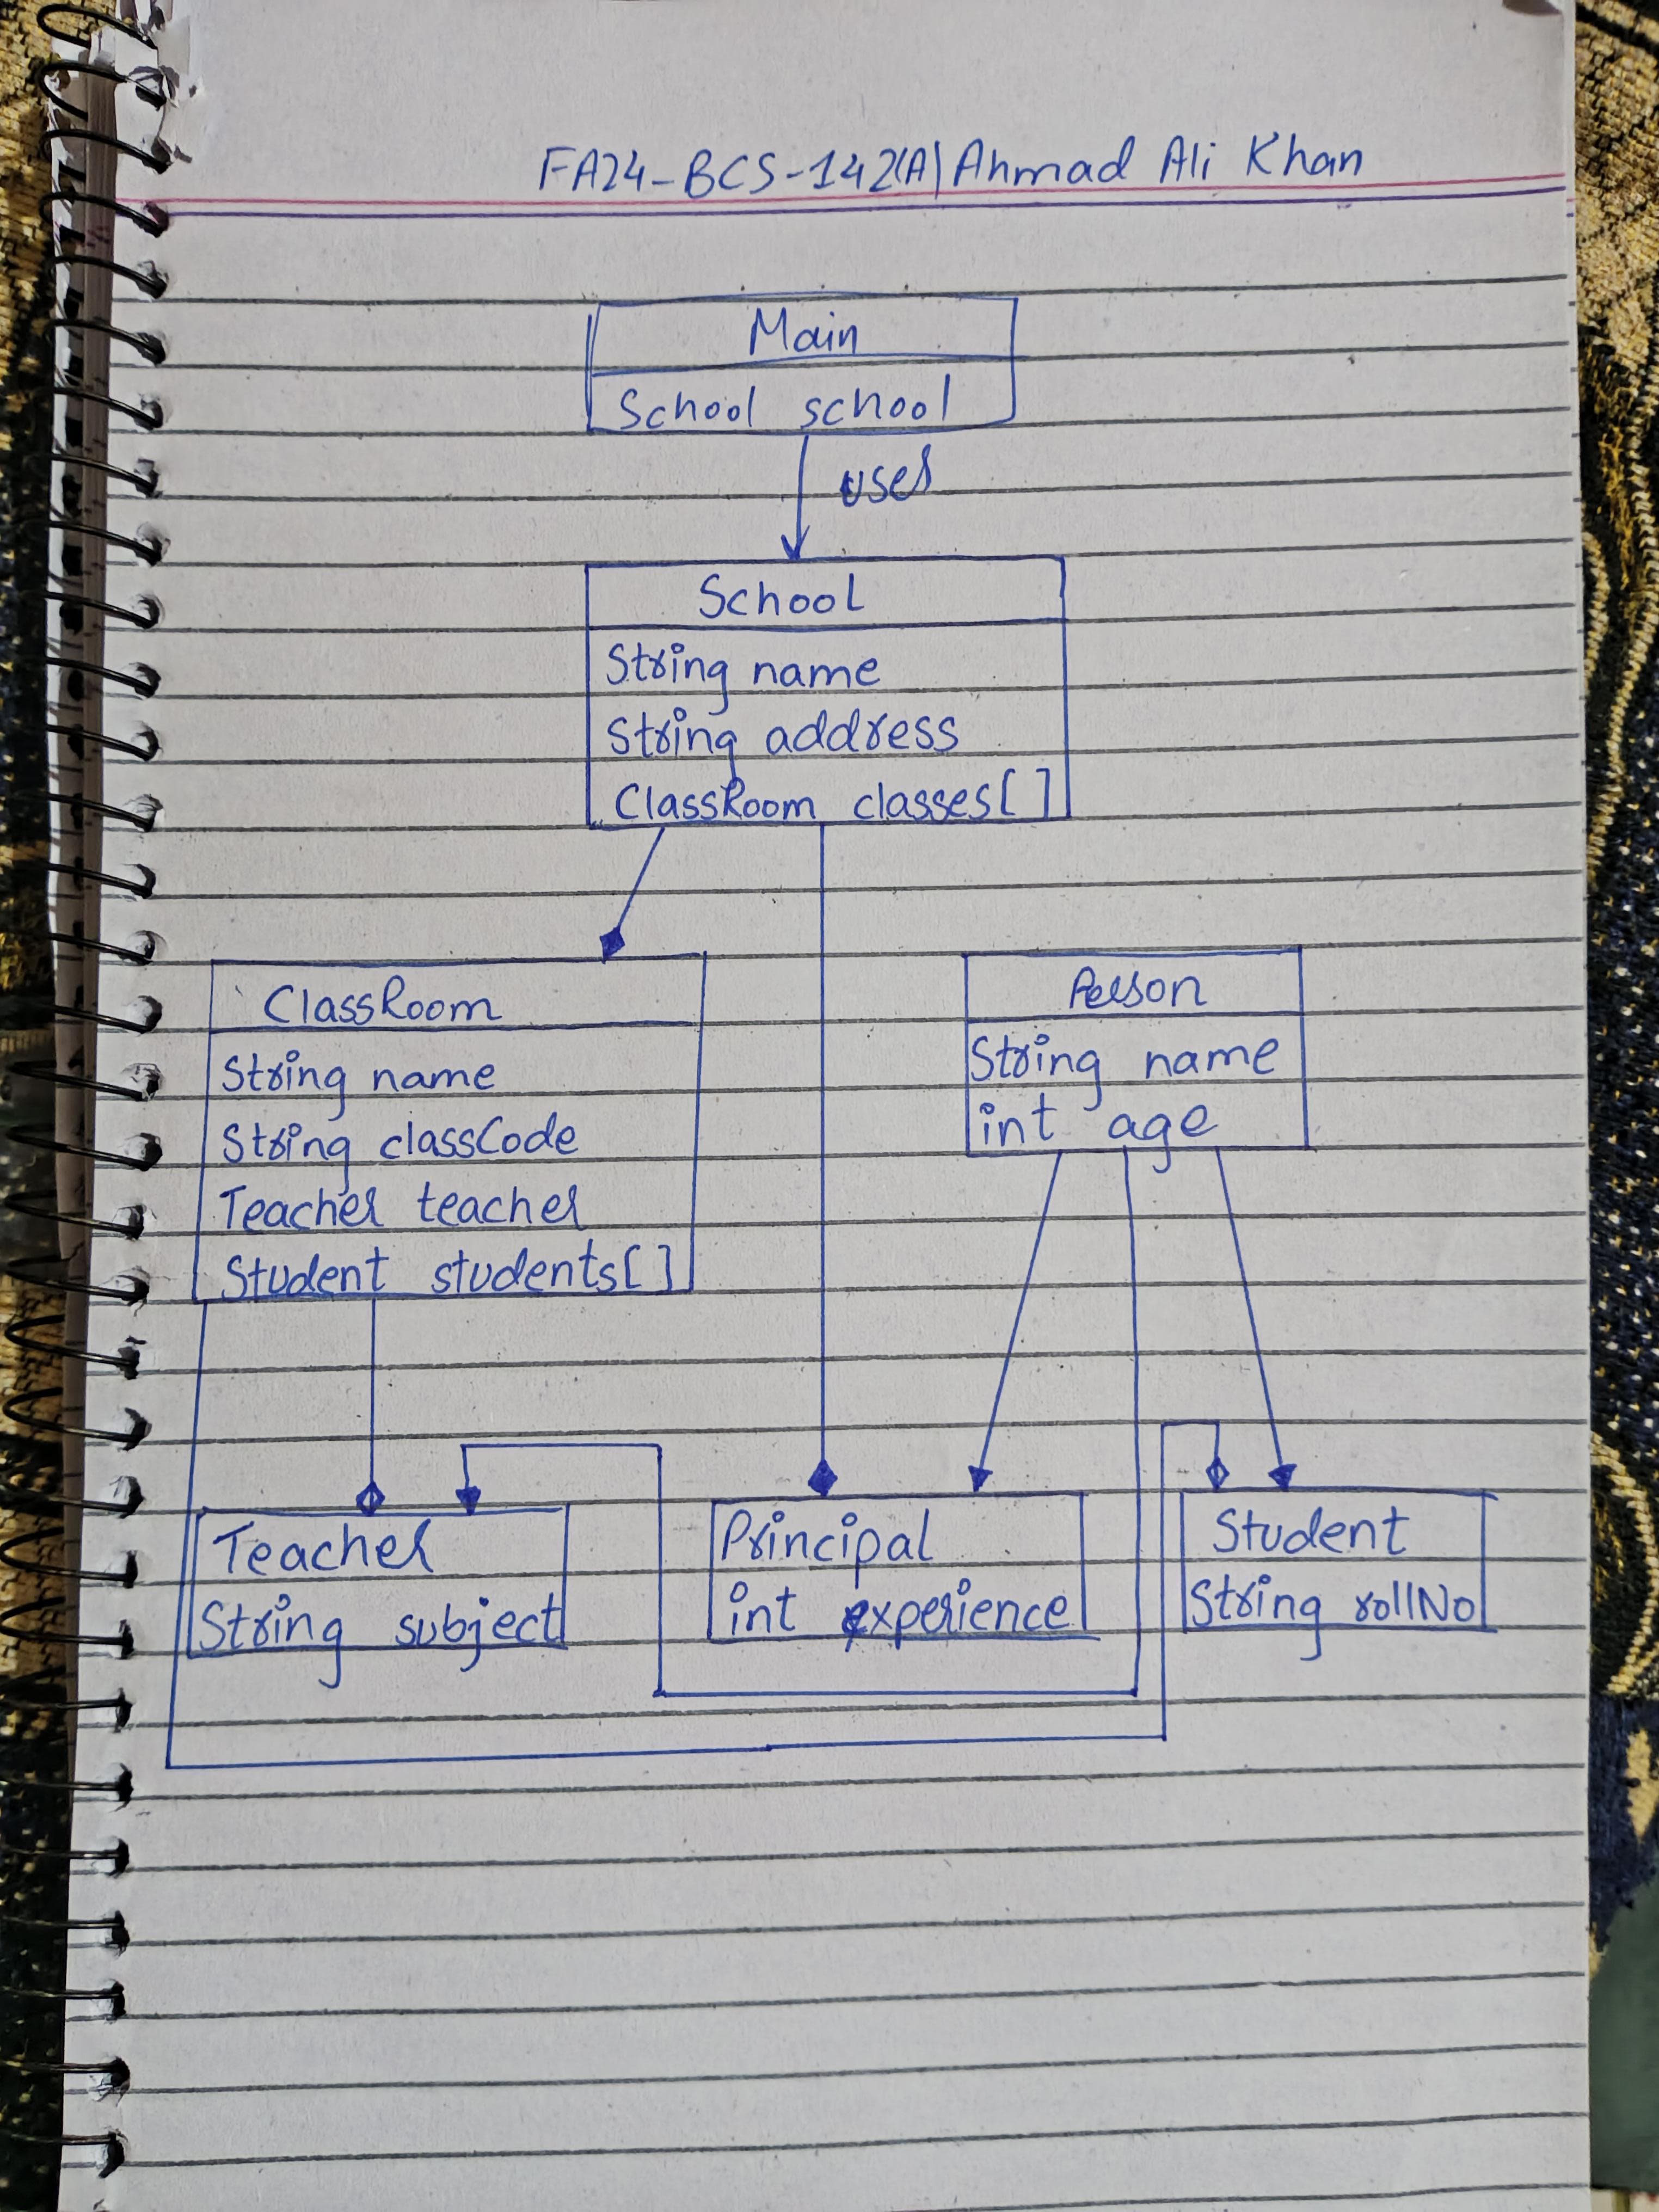 FA24-BCS-142(A) Ahmad Ali Khan
Main
School school
uses
School
String name
String address
ClassRoom classes[]
ClassRoom
String name
String classCode
Teacher teacher
Student students[]
Person
String name
int age
Teacher
String subject
Principal
int experience
Student
String rollNo